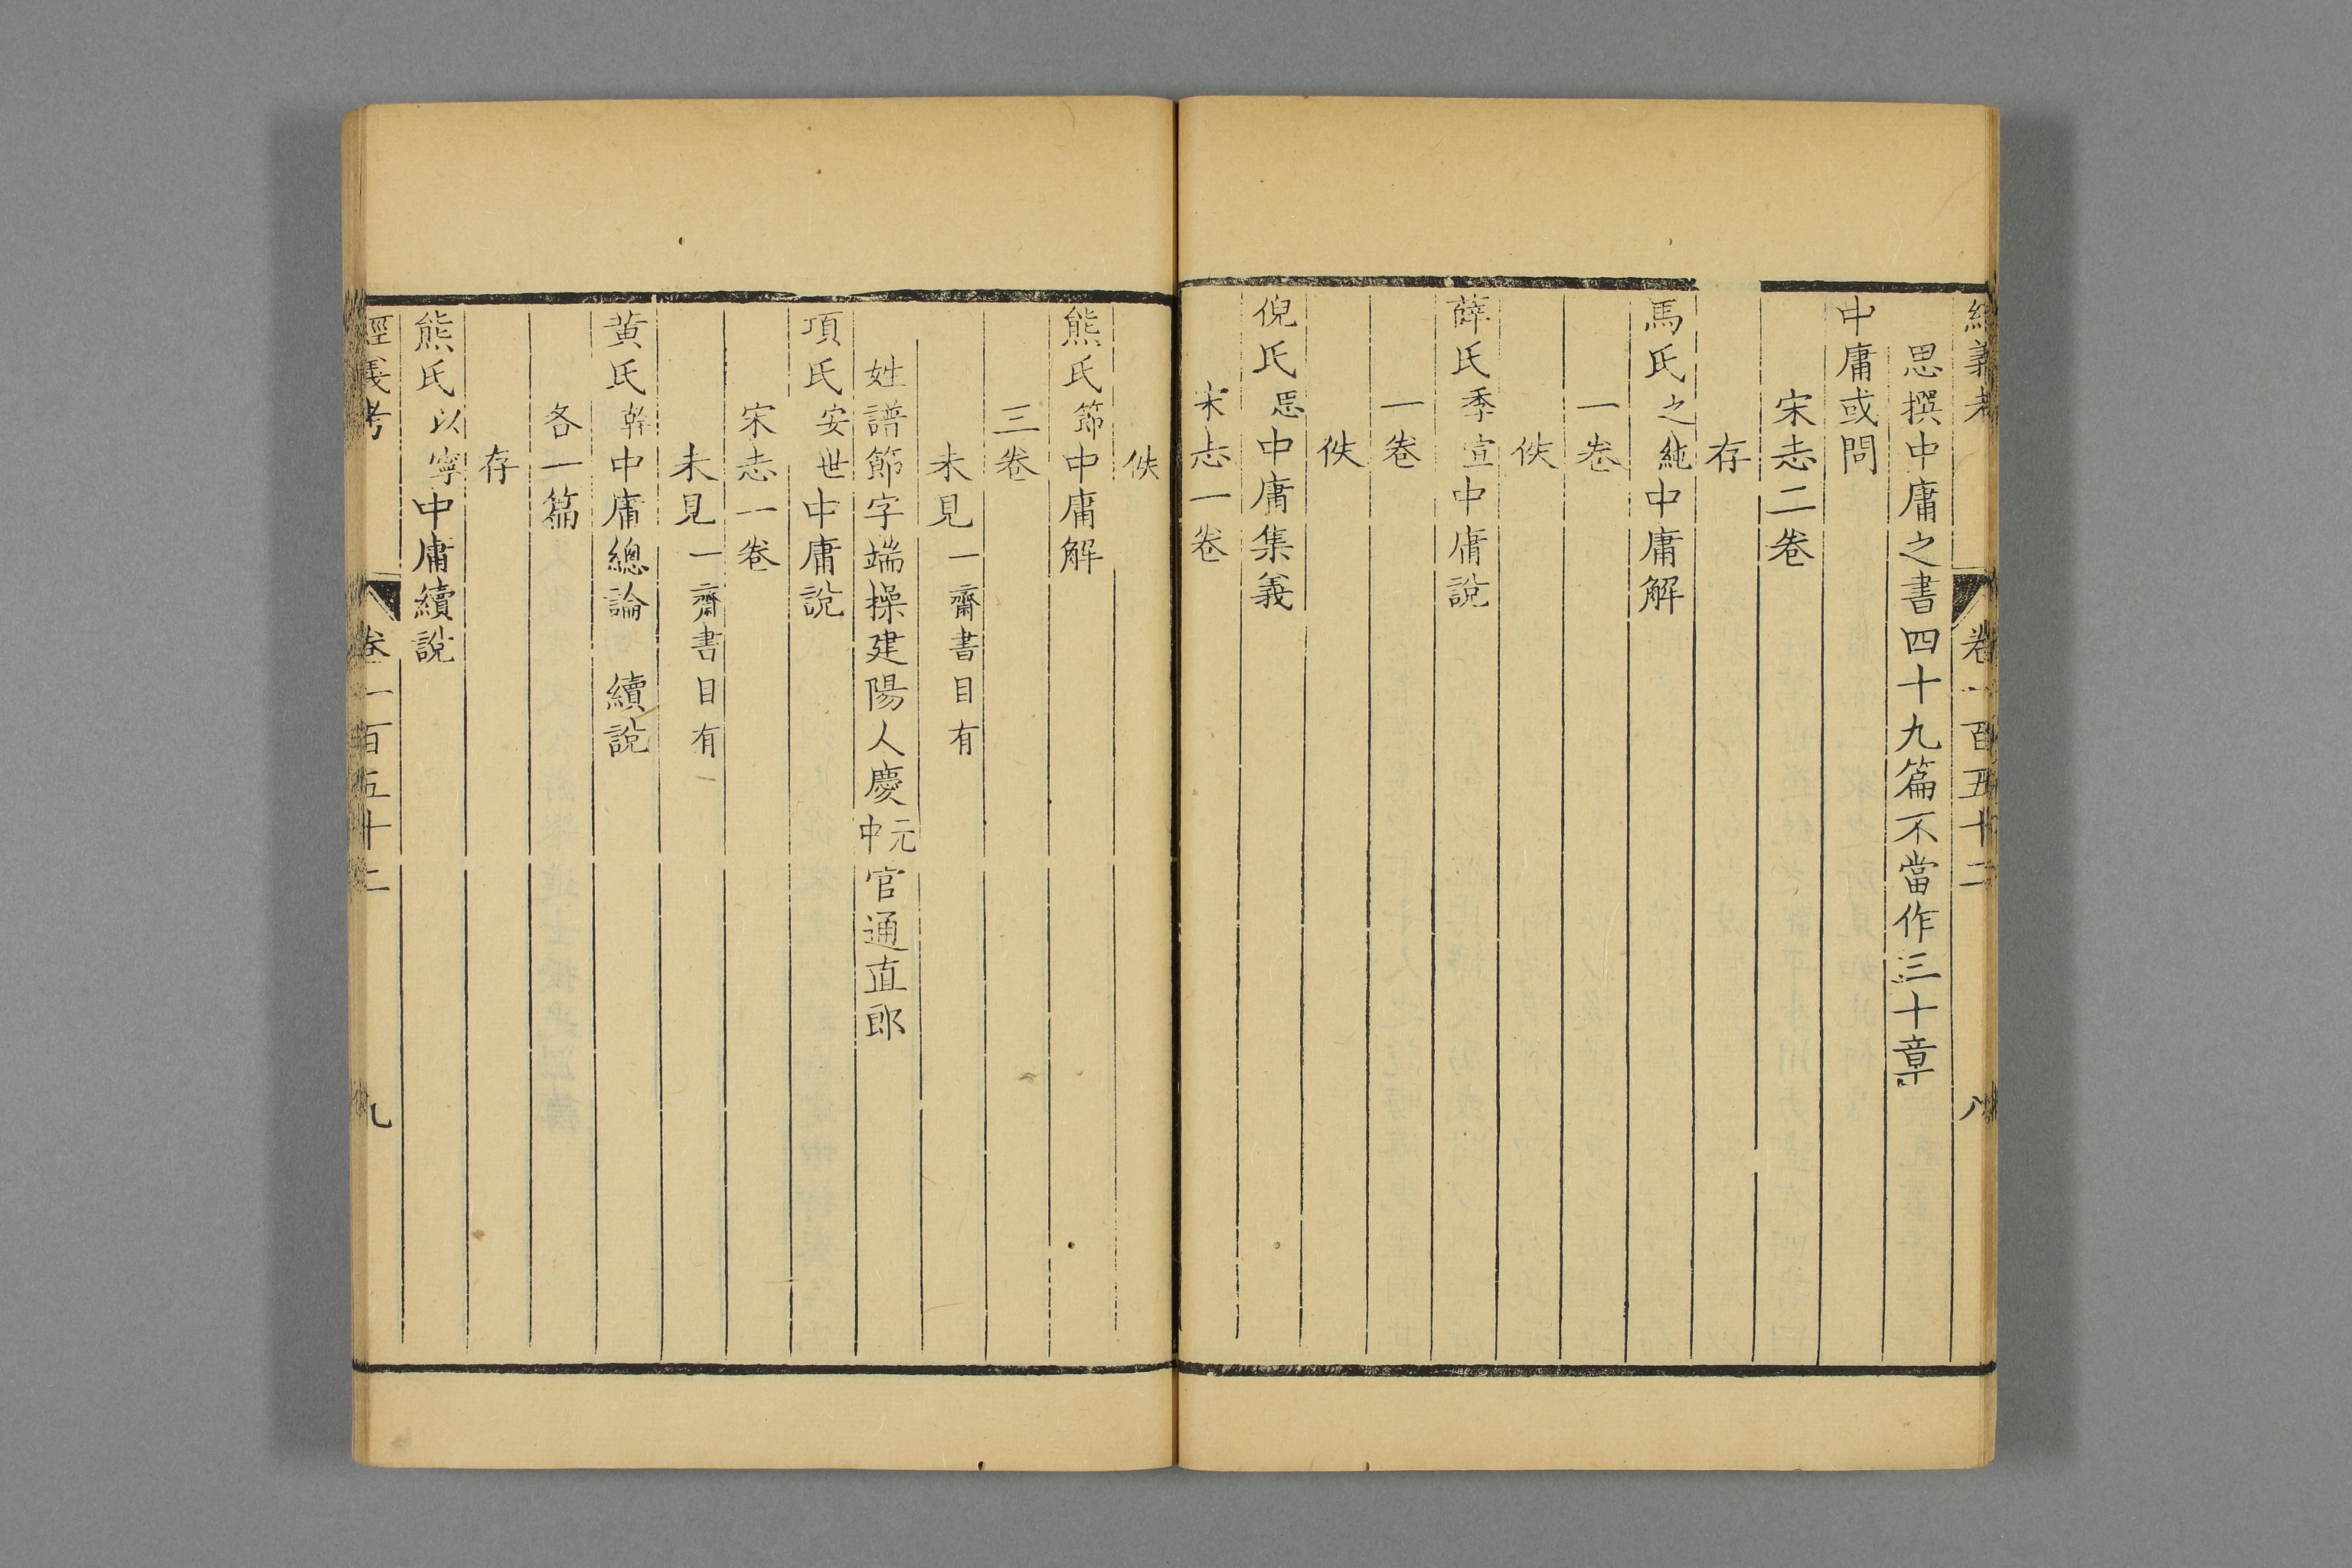 經義考 卷一百五十二 八
思撰中庸之書四十九篇不當作三十章
中庸或問
宋志二卷
存
馬氏之純中庸解
一卷
佚
薛氏季宣中庸說
一卷
佚
倪氏思中庸集義
宋志一卷
佚
熊氏節中庸解
三卷
未見一齋書目有
姓譜節字端操建陽人慶元中官通直郎
項氏安世中庸說
宋志一卷
未見一齋書目有
黃氏榦中庸總論 續說
各一篇
存
熊氏以寧中庸續說
經義考 卷一百五十二 九